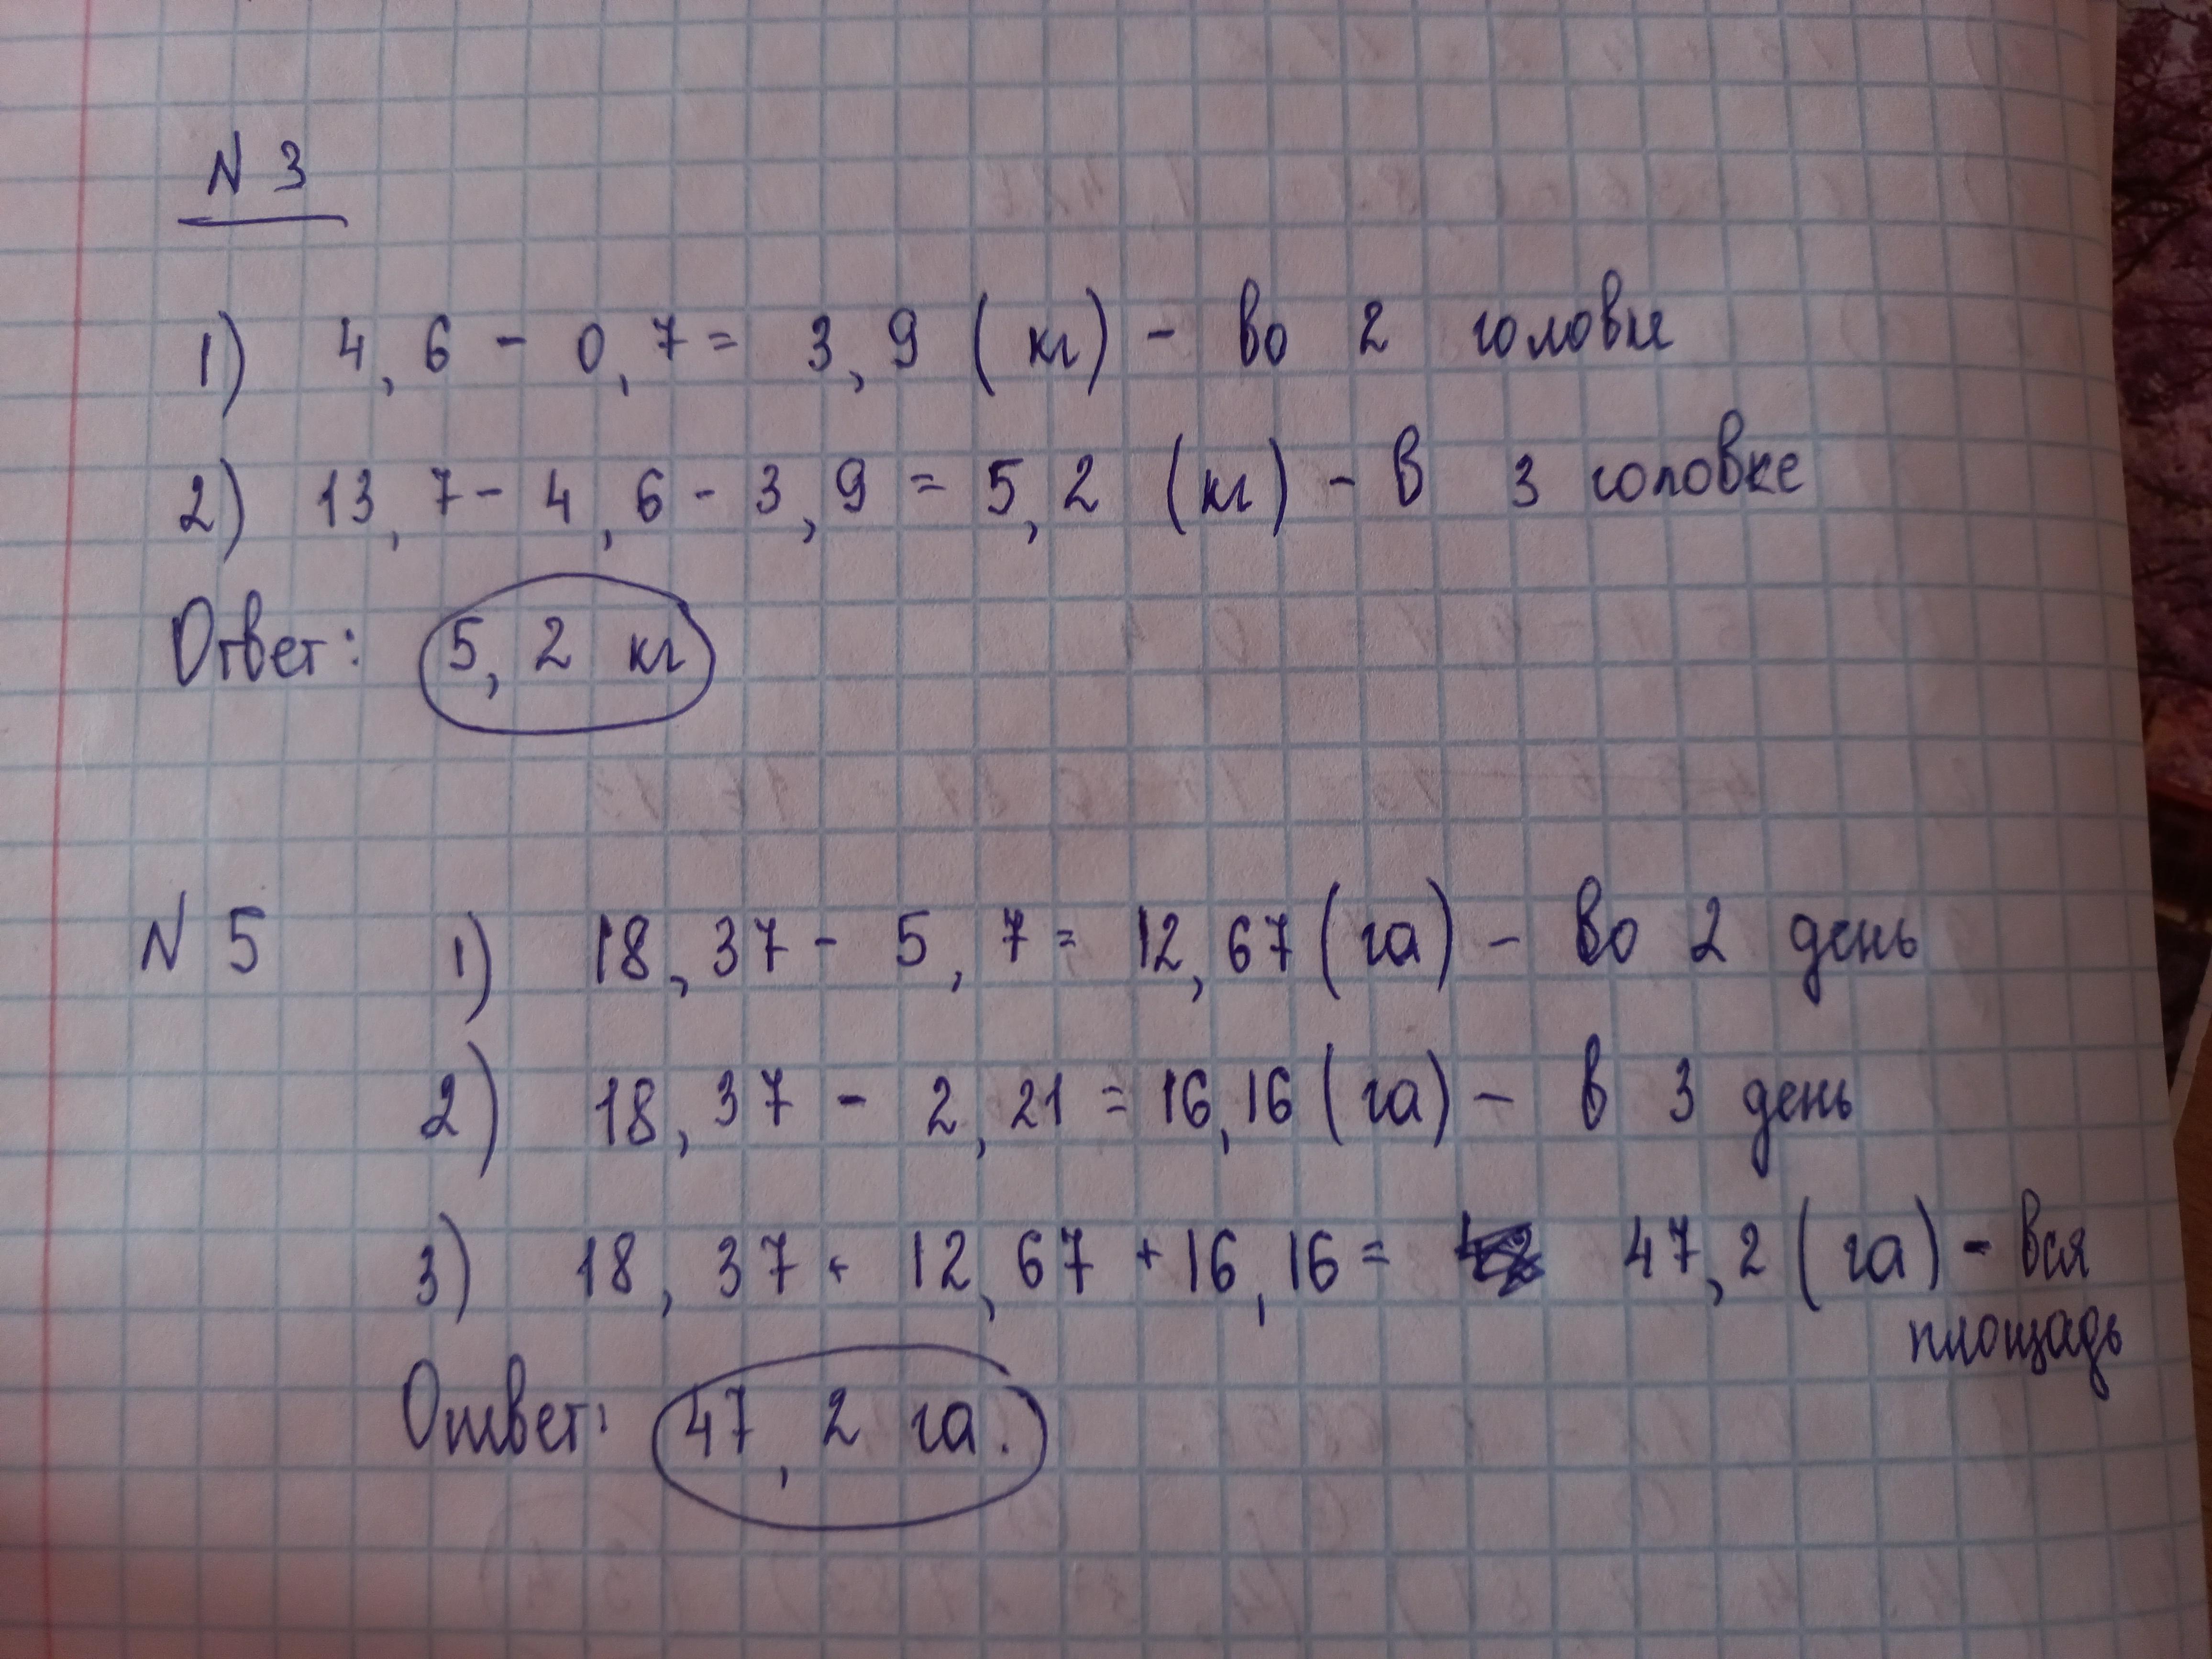 N 3
1) 4,6 - 0,7 = 3,9 (кг) - во 2 головке
2) 13,7 - 4,6 - 3,9 = 5,2 (кг) - в 3 головке
Ответ: 5,2 кг
N 5 1) 18,37 - 5,7 = 12,67 (га) - во 2 день
2) 18,37 - 2,21 = 16,16 (га) - в 3 день
3) 18,37 + 12,67 + 16,16 = 47,2 (га) - вся
площадь
Ответ: 47,2 га.